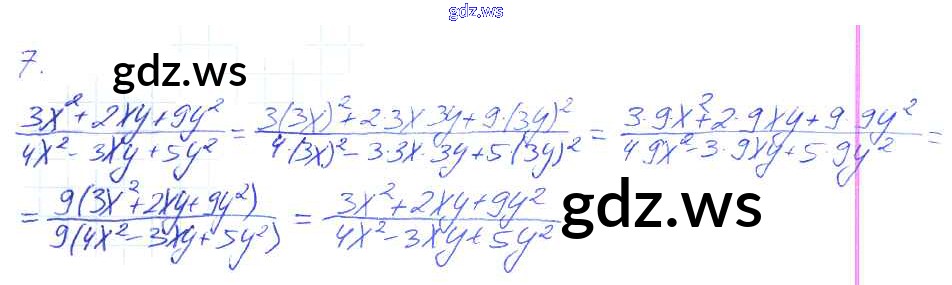 gdz.ws
7.
gdz.ws
(3x² + 2xy + 9y²)/(4x² - 3xy + 5y²) = (3(3x)² + 2·3x·3y + 9·(3y)²)/(4·(3x)² - 3·3x·3y + 5·(3y)²) = (3·9x² + 2·9xy + 9·9y²)/(4·9x² - 3·9xy + 5·9y²) =
= (9(3x² + 2xy + 9y²))/(9(4x² - 3xy + 5y²)) = (3x² + 2xy + 9y²)/(4x² - 3xy + 5y²)
gdz.ws